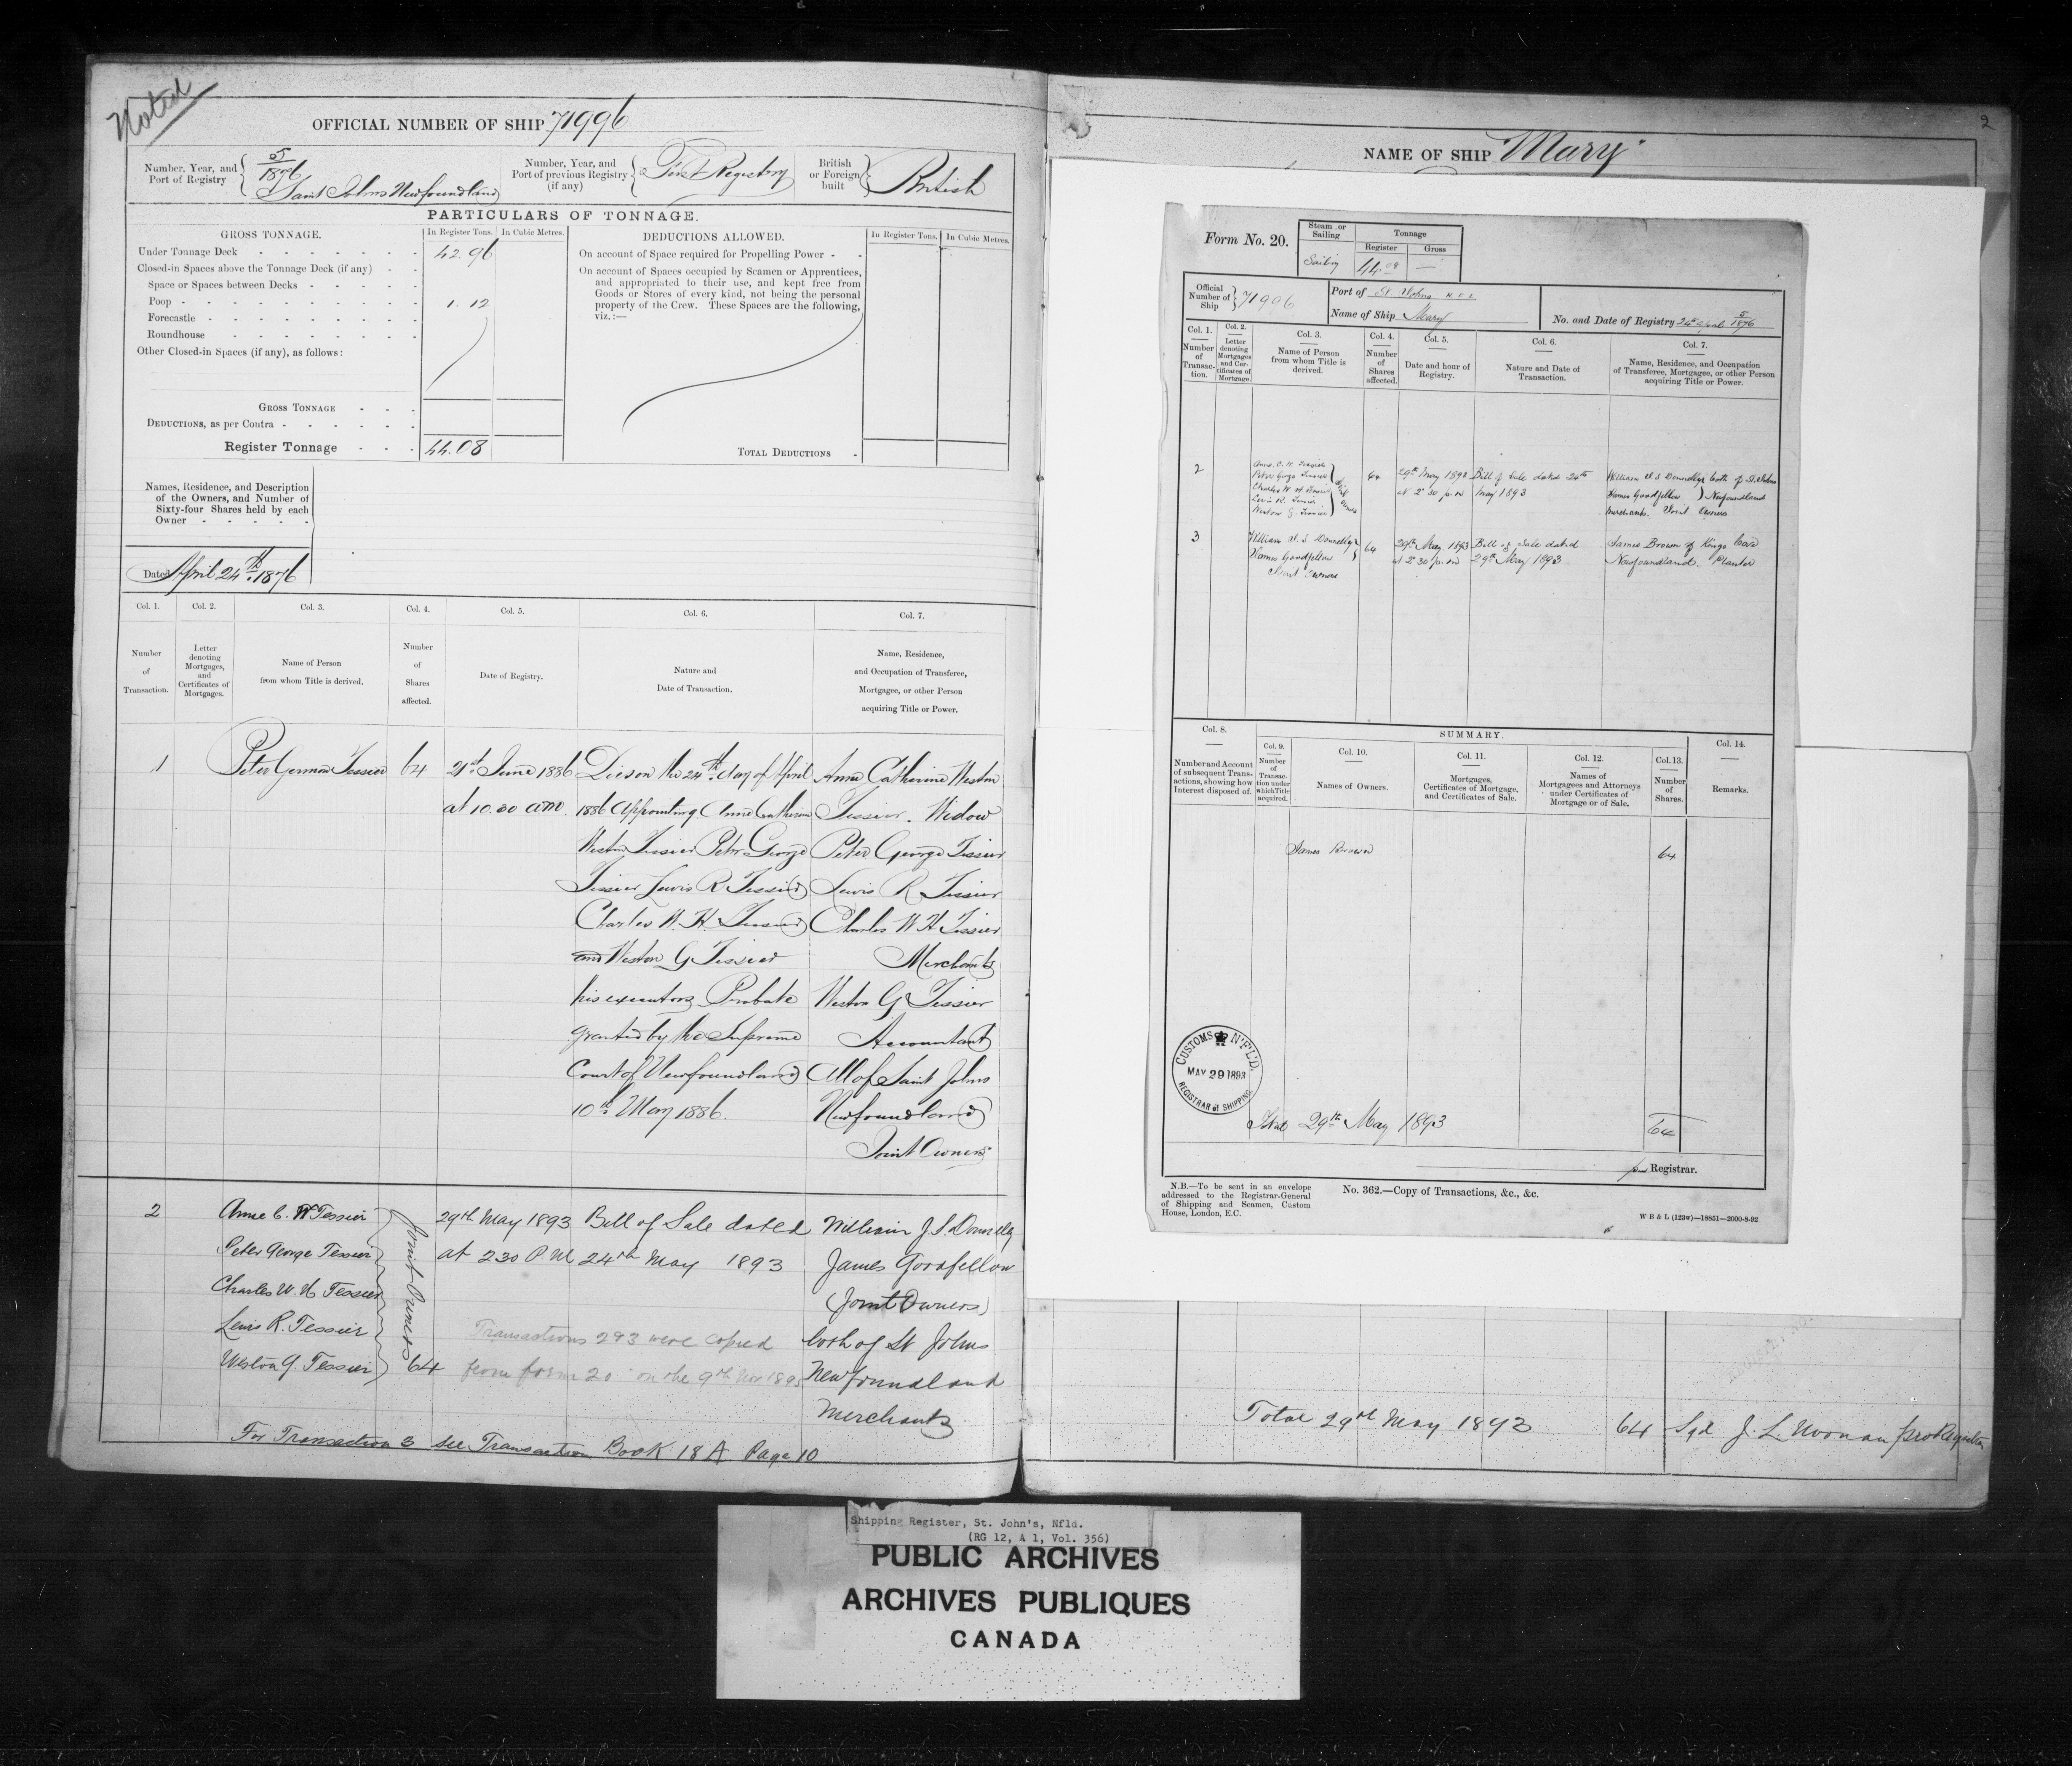 Noted
OFFICIAL NUMBER OF SHIP 71996
Number, Year, and Port of Registry
5
1876
Saint Johns Newfoundland
Number, Year, and Port of previous Registry (if any)
First Registry
British or Foreign built
British
PARTICULARS OF TONNAGE.
GROSS TONNAGE. In Register Tons. In Cubic Metres.
Under Tonnage Deck 42.96
Closed-in Spaces above the Tonnage Deck (if any)
Space or Spaces between Decks
Poop 1.12
Forecastle
Roundhouse
Other Closed-in Spaces (if any), as follows:
GROSS TONNAGE
DEDUCTIONS, as per Contra
Register Tonnage 44.08
DEDUCTIONS ALLOWED. In Register Tons. In Cubic Metres.
On account of Space required for Propelling Power
On account of Spaces occupied by Seamen or Apprentices,
and appropriated to their use, and kept free from
Goods or Stores of every kind, not being the personal
property of the Crew. These Spaces are the following,
viz.:—
TOTAL DEDUCTIONS
Names, Residence, and Description
of the Owners, and Number of
Sixty-four Shares held by each
Owner
Dated April 24th 1876
Col. 1. Col. 2. Col. 3. Col. 4. Col. 5. Col. 6. Col. 7.
Number of Transaction.
Letter denoting Mortgages, and Certificates of Mortgages.
Name of Person from whom Title is derived.
Number of Shares affected.
Date of Registry.
Nature and Date of Transaction.
Name, Residence, and Occupation of Transferee, Mortgagee, or other Person acquiring Title or Power.
1 Peter German Tessier 64 21st June 1886 Died on the 24th day of April Anne Catherine Weston
at 10.30 am. 1886 Appointing Anne Catherine Tessier. Widow
Weston Tessier Peter George Peter George Tessier
Tessier Lewis R Tessier Lewis R Tessier
Charles W. H. Tessier Charles W H Tessier
and Weston G Tessier Merchants
his executors Probate Weston G Tessier
granted by the Supreme Accountant
Court of Newfoundland All of Saint Johns
10th May 1886. Newfoundland
Joint Owners
2 Anne C. W Tessier 29th May 1893 Bill of Sale dated William J. S. Donnelly
Peter George Tessier at 2 30 P.M 24th May 1893 James Goodfellow
Charles W. H Tessier (Joint Owners)
Lewis R. Tessier Transactions 2 & 3 were copied both of St Johns
Weston G. Tessier Joint Owners 64 from form 20 on the 9th Nov 1895 Newfoundland
Merchants
For Transaction 3 see Transaction Book 18 A Page 10
2
NAME OF SHIP Mary
Form No. 20.
Steam or Sailing Tonnage
Register Gross
Sailing 44.08 —
Official Number of Ship 71996
Port of St. Johns N.F.L
Name of Ship Mary
No. and Date of Registry 24th April 5/1876
Col. 1. Col. 2. Col. 3. Col. 4. Col. 5. Col. 6. Col. 7.
Number of Transaction.
Letter denoting Mortgages and Certificates of Mortgage.
Name of Person from whom Title is derived.
Number of Shares affected.
Date and hour of Registry.
Nature and Date of Transaction.
Name, Residence, and Occupation of Transferee, Mortgagee, or other Person acquiring Title or Power.
2 Anne. C. W. Tessier 64 29th May 1893 Bill of Sale dated 24th William J. S Donnelly both of St. Johns
Peter George Tessier at 2 30 p.m May 1893 James Goodfellow Newfoundland
Charles W H Tessier Merchants. Joint Owners
Lewis R. Tessier
Weston G. Tessier
3 William J. S. Donnelly 64 29th May 1893 Bill of Sale dated James Brown of Kings Cove
James Goodfellow at 2 30 p.m 29th May 1893 Newfoundland. Planter
Joint Owners
SUMMARY.
Col. 8. Col. 9. Col. 10. Col. 11. Col. 12. Col. 13. Col. 14.
Number and Account of subsequent Transactions, showing how Interest disposed of.
Number of Transaction under which Title acquired.
Names of Owners.
Mortgages, Certificates of Mortgage, and Certificates of Sale.
Names of Mortgagees and Attorneys under Certificates of Mortgage or of Sale.
Number of Shares.
Remarks.
James Brown 64
CUSTOMS N'F'L'D.
MAY 29 1893
REGISTRAR of SHIPPING
Total 29th May 1893 64
pro Registrar.
N.B.—To be sent in an envelope
addressed to the Registrar-General
of Shipping and Seamen, Custom
House, London, E.C.
No. 362.—Copy of Transactions, &c., &c.
W B & L (123w)—18851—2000-8-92
Total 29th May 1893 64 Sgd J. L. Noonan pro Registrar
Shipping Register, St. John's, Nfld.
(RG 12, A 1, Vol. 356)
PUBLIC ARCHIVES
ARCHIVES PUBLIQUES
CANADA